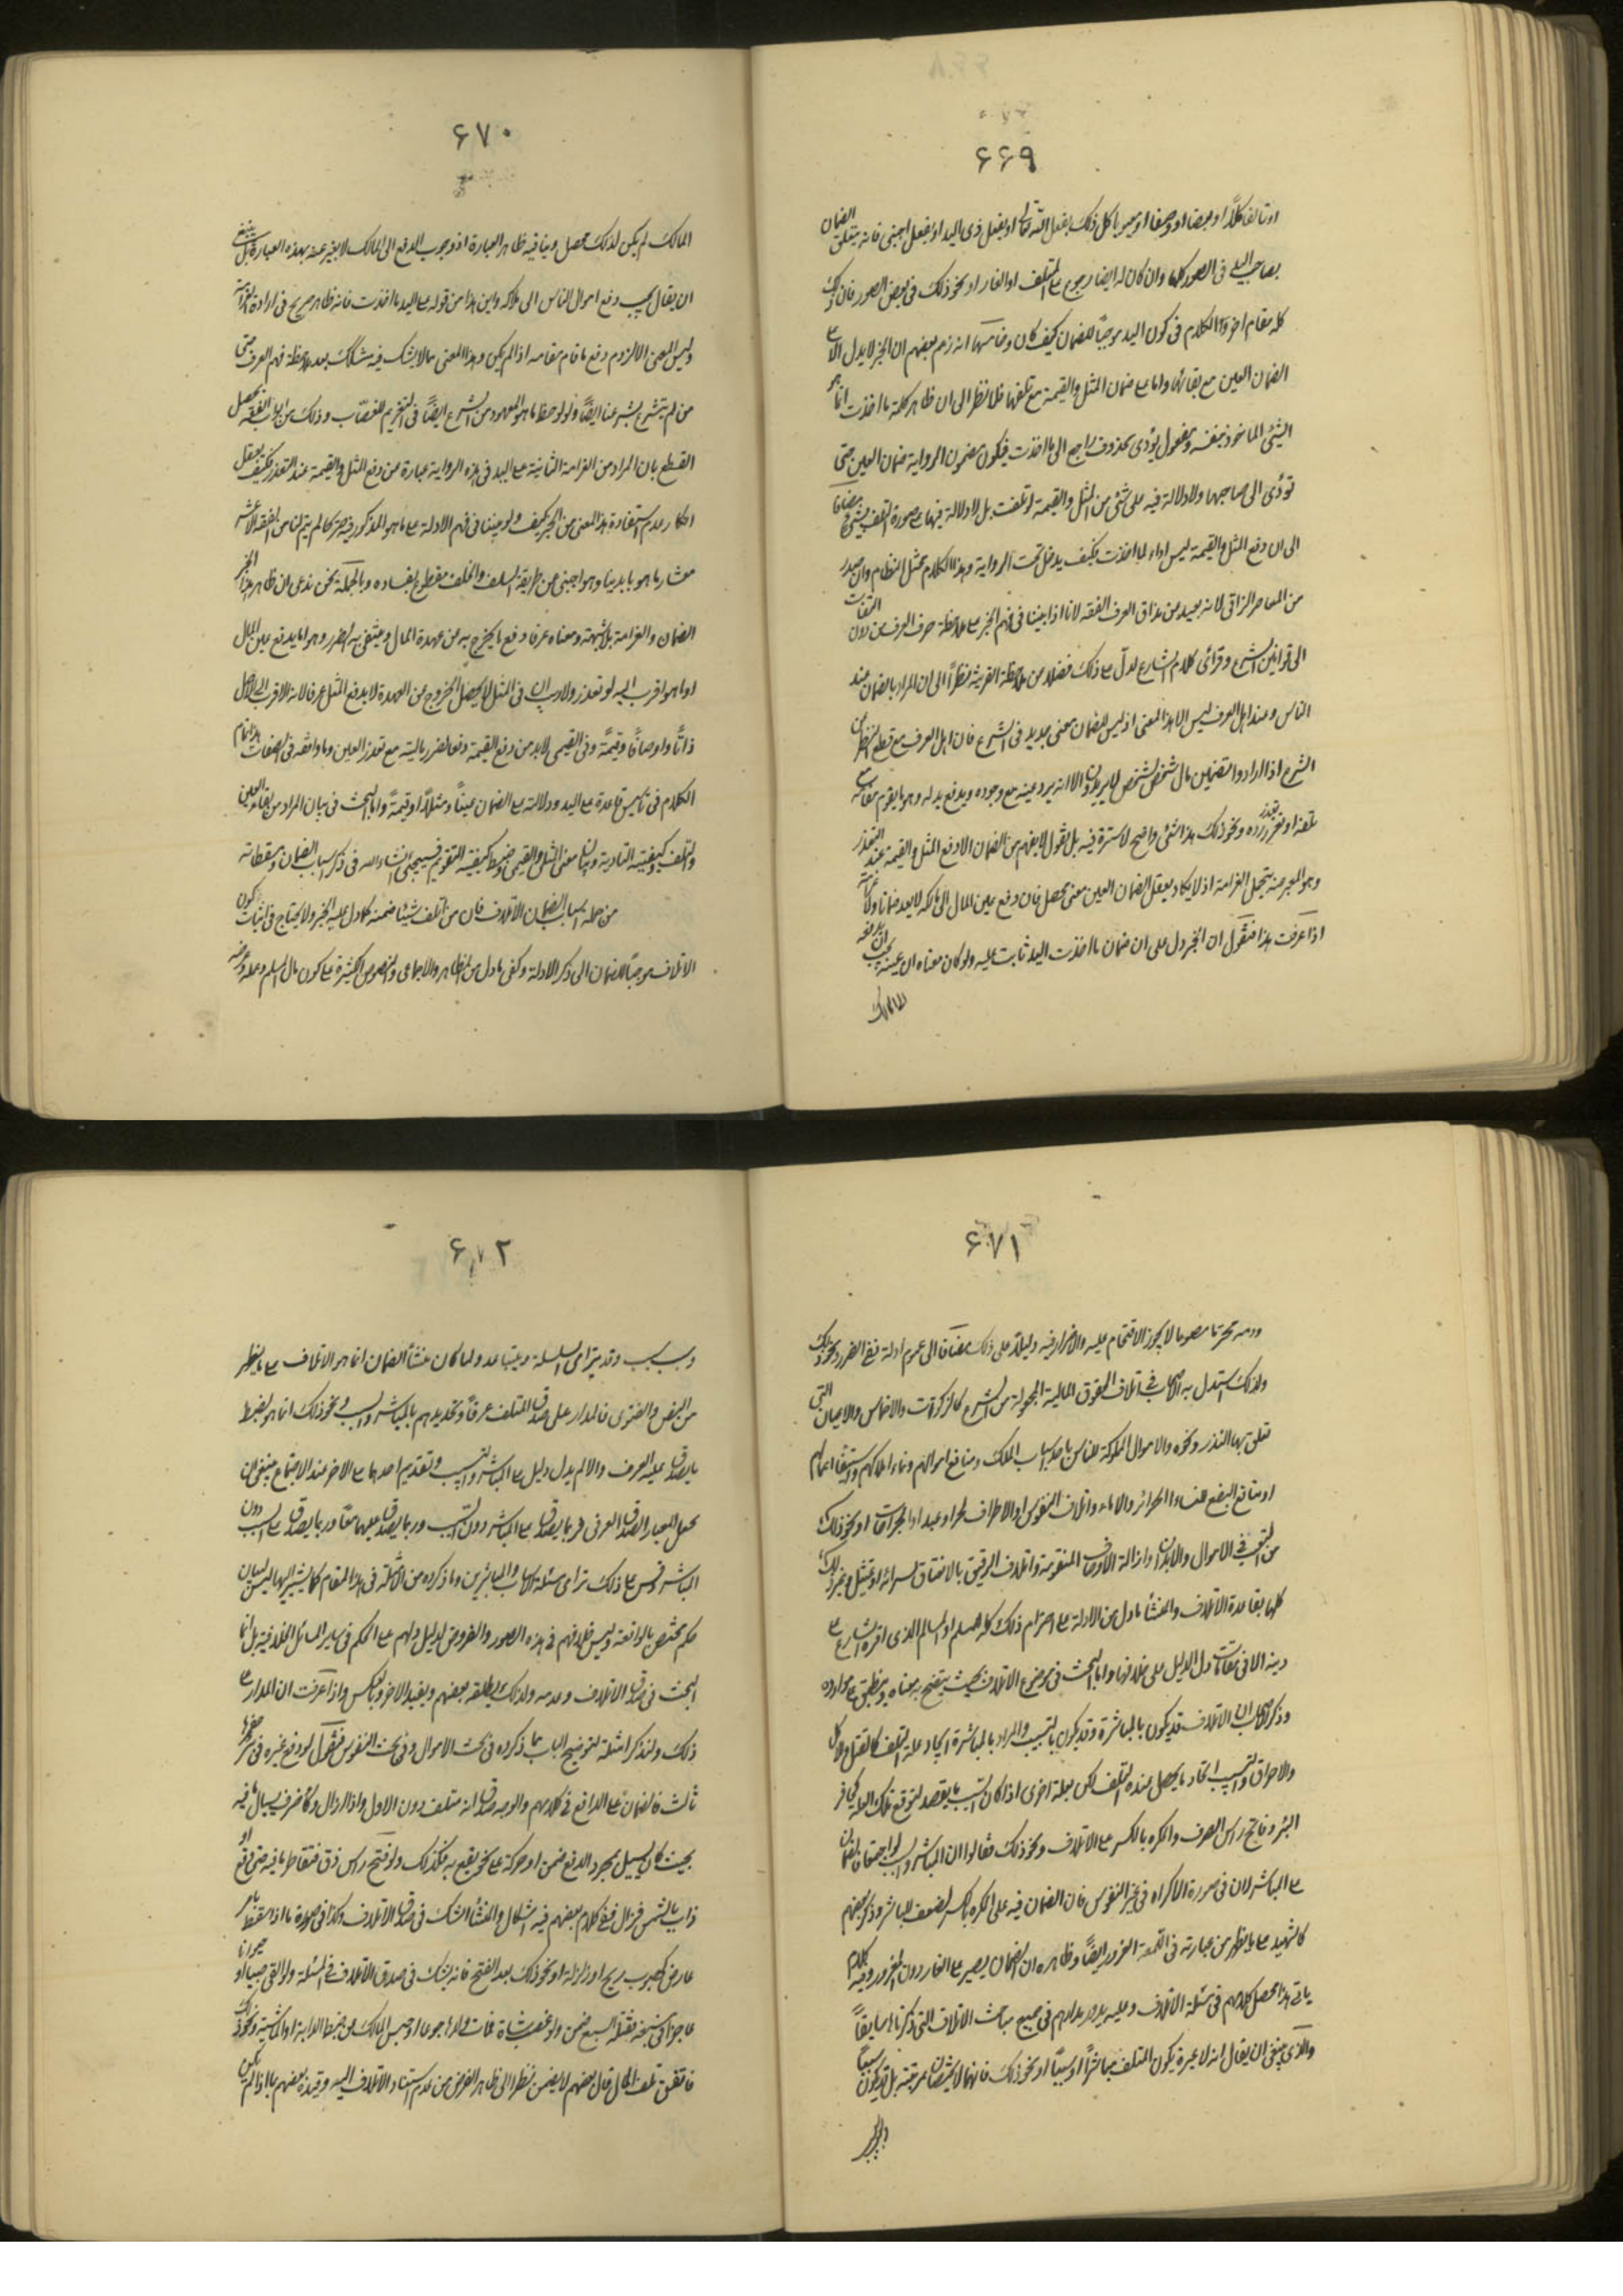 ۶۶۹
او تالفا كلاً او بعضا او وصفا او معيوبا كل ذلك بفعل الله تعالى او بفعل ذى اليد او بفعل اجنبى فانه يتعلق الضمان
بصاحب اليد فى الصور كلها وان كان له ايضا رجوع على المتلف او الغار او نحو ذلك فى بعض الصور فان ذلك
كله مقام اخر وانما الكلام فى كون اليد موجبًا للضمان كيف كان وخامسها انه زعم بعضهم ان الخبر لا يدل الا على
الضمان العين مع بقائها واما على ضمان المثل والقيمة مع تلفها فلا نظرا الى ان ظاهر كلمة ما اخذت انما هو
الشئ الماخوذ بنفسه ومفعول يؤدى محذوف راجع الى ما اخذت فيكون مضمون الرواية ضمان العين حتى
تؤدى الى صاحبها ولا دلالة فيه على شئ من المثل والقيمة لو تلفت بل لا دلالة فيها على صورة التلف بشئ مضافا
الى ان دفع المثل والقيمة ليس اداء لما اخذت فكيف يدخل تحت الرواية وهذا الكلام مختل النظام وان صدر
من المعاصر النراقى لانه بعيد عن مذاق العرف الفقه لانا اذا بنينا فى فهم الخبر على ملاحظة صرف العرف من دون التفات
الى قوانين الشرع وقرائن كلام الشارع لدل على ذلك فضلا عن ملاحظة القرينة نظراً الى ان المراد بالضمان عند
الناس وعند اهل العرف ليس الا هذا المعنى اذ ليس للضمان معنى جديد فى الشرع فان اهل العرف مع قطع النظر عن
الشرع اذا ارادوا تضمين مال شخص لشخص لا يريدون الا انه يرد عينه مع وجوده ويدفع بدله وهو ما يقوم مقامه مع
تلفه او تعذر رده ونحو ذلك هذا الشئ واضح لا سترة فيه بل نقول لا يفهم من الضمان الا دفع المثل والقيمة عند التعذر
وهو المعبر عنه بتحمل الغرامة اذ لا يكاد يعقل الضمان العين معنى محصل فان دفع عين المال الى مالكه لا يعد ضمانا ولا غرامة
اذا عرفت هذا فنقول ان الخبر دل على ان ضمان ما اخذت اليد ثابت عليه ولو كان معناه ان عينه يجب ان يدفعه
المالك
۶۷۰
المالك لم يكن لذلك محصل وينافيه ظاهر العبارة اذ وجوب الدفع الى المالك لا يعبر عنه بهذه العبارة بل ينبغى
ان يقال يجب دفع اموال الناس الى ملاكه واين هذا من قوله على اليد ما اخذت فانه ظاهر صريح فى ارادة الغرامة
وليس المعنى الا لزوم دفع ما قام مقامه اذا لم يكن وهذا المعنى مما لا يشك فيه شاك بعد ملاحظة فهم العرف حتى
من لم يتشرع بشرعنا ايضًا ولو لوحظ ما هو المعهود من الشرع ايضًا فى التغريم للغصاب وذلك من ابواب الفقه تحصل
القطع بان المراد من الغرامة الثانية على اليد فى هذه الرواية عبارة عن دفع المثل والقيمة عند التعذر فكيف يعقل
انكار عدم استفادة هذا المعنى من الخبر كيف ولو بنينا فى فهم الادلة على ما هو المذكور فيه صريحا لم يتم لنا من الفقه الا عشر
معشار ما هو بايدينا وهو اجنبى عن طريقة السلف والخلف مقطوع بفساده وبالجملة نحن ندعى ان ظاهر هذا الخبر
الضمان والغرامة بلا شبهة ومعناه عرفا دفع ما يخرج به من عهدة المال وينتفى به الضرر وهو اما يدفع عين المال
او ما هو اقرب اليه لو تعذر ولا ريب ان فى المثل لا يحصل الخروج من العهدة الا بدفع المثل عرفا لانه الاقرب الى الاصل
ذاتًا واوصافًا وقيمةً وفى القيمى لابد من دفع القيمة دفعا لضرر ماليته مع تعذر العين وما وافقه فى الصفات هذا تمام
الكلام فى تاسيس قاعدة على اليد ودلالته على الضمان عيناً ومثلاً او قيمةً واما البحث فى بيان المراد من بقاء العين
والتلف وكيفية التادية وبيان معنى المثل والقيمى وضبط كيفية التقويم فسيجئ انشاء الله فى ذكر اسباب الضمان ومسقطاته
من جملة اسباب الضمان الاتلاف فان من اتلف شيئا ضمنه كما دل عليه الخبر ولا يحتاج فى اثبات كون
الاتلاف موجبًا للضمان الى ذكر الادلة وكفى ما دل من الظاهر والاجماعى والنصوص الكثيرة على كون مال المسلم وعمله وعرضه
۶۷۱
ودمه محرما مصونا لا يجوز الاقتحام عليه والاضرار فيه دليلاً على ذلك مضافا الى عموم ادلة نفى الضرر ونحو ذلك
ولذلك استدل به الاصحاب فى اتلاف الحقوق المالية المجعولة من الشرع كالزكوات والاخماس والاعيان التى
تعلق بها النذر ونحوه والاموال المملوكة للناس باحد اسباب الملك ومنافع اموالهم ونماء املاكهم واستيفاء اعمالهم
او منافع البضع للنساء الحرائر والاماء واتلاف النفوس او الاطراف لحر او عبد او الجراحات او نحو ذلك
من الجنى فى الاموال والابدان وازالة الاوصاف المتقومة واتلاف الرقيق بالاعتاق لسراية او تمثيل وغير ذلك
كلها بقاعدة الاتلاف والمنشأ ما دل من الادلة على احترام ذلك كله للمسلم او المسالم الذى اقره الشارع على
دينه الا فى مقامات دل الدليل على خلافها واما البحث فى موضوع الاتلاف بحيث يتضح به معناه وينطبق على موارده
وذكر الاصحاب ان الاتلاف قد يكون بالمباشرة وقد يكون بالتسبيب والمراد بالمباشرة ايجاد علة التلف كالقتل والاكل
والاحراق والتسبيب ايجاد ما يحصل عنده التلف لكن بعلة اخرى اذا كان السبب مما يقصد لتوقع تلك العلة كحافر
البئر وفاتح راس الظرف والمكره بالكسر على الاتلاف ونحو ذلك فقالوا ان المباشر والسبب لو اجتمعا فالضمان
على المباشر لان فى صورة الاكراه فى غير النفوس فان الضمان فيه على المكره بالكسر لضعف المباشر وذكر بعضهم
كالشهيد على ما يظهر من عبارته فى اللمعة الغرور ايضًا وظاهره ان الضمان يصير على الغار دون المغرور وفيه كلام
ياتى هذا محصل كلامهم فى مسئلة الاتلاف وعليه يدور مدارهم فى جميع مباحث الاتلاف التى ذكرناها سابقاً
والذى ينبغى ان يقال انه لا عبرة بكون المتلف مباشرًا او سببًا او نحو ذلك فانهما لا يقتضيان مرتبة بل قد يكون سبباً
۶۷۲
وسبب سبب وقد يترامى السلسلة ويتباعد ولما كان منشأ الضمان انما هو الاتلاف على ما يظهر
من النص والفتوى فالمدار على صدق المتلف عرفًا وتحديدهم بالمباشر والسبب ونحو ذلك انما هو لضبط
ما يصدق عليه العرف والا لم يدل دليل على المباشر والسبب وتقديم احدهما على الاخر عند الاجتماع فينبغى ان
يجعل المعيار الصدق العرفى فربما يصدق على المباشر دون السبب وربما يصدق عليهما معًا وربما يصدق على السبب دون
المباشر وقس على ذلك ترامى سلسلة الاسباب والمباشرين وما ذكروه من الامثلة فى هذا المقام كما يشير اليها ليس لبيان
حكم مختص بالواقعة وليس خلافهم فى هذه الصور والفروض لدليل دلهم على الحكم فى ساير المسائل الخلافية بل انما
البحث فى صدق الاتلاف وعدمه ولذلك يطلقه بعضهم ويقيد الاخر وبالعكس واذا عرفت ان المدار على
ذلك ولنذكر امثلة لتوضيح الباب مما ذكروه فى بحث الاموال وفى بحث النفوس فنقول لو دفع غيره فى بئر حفرها
ثالث فالضمان على الدافع فى كلامهم والوجه صدق انه متلف دون الاول واذا ازال وكاء ظرف فسال ما فيه
بحيث كان يسيل بمجرد الدفع ضمن او حركة على نحو يقع به فكذلك ولو فتح راس زق فتقاطر ما فيه حتى وقع او
ذاب بالشمس فزال ففى كلام بعضهم فيه اشكال والمنشأ الشك فى صدق الاتلاف وكذا فى صورة ما اذا سقط بامر
عارض كهبوب ريح او زلزلة او نحو ذلك بعد الفتح فانه يشك فى صدق الاتلاف فى المسئلة ولو القى صبيا او حيوانا
عاجزا فى مسبعة فقتله السبع ضمن ولو غصب شاة فمات ولدها جوعا او حبس المالك عن ضبط الدابة او الماشية ونحو ذلك
فاتفق تلف المال قال بعضهم لا يضمن نظرا الى ظاهر الفرض من عدم استناد الاتلاف اليه وقيده بعضهم بما اذا لم يكن